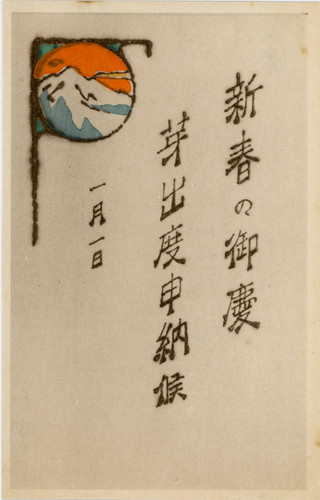 新春の御慶
芽出度申納候
一月一日